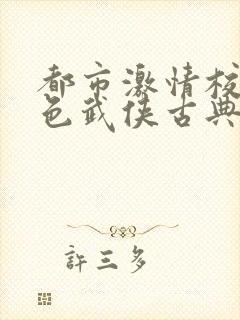 都市激情校
色武侠古典
許三多